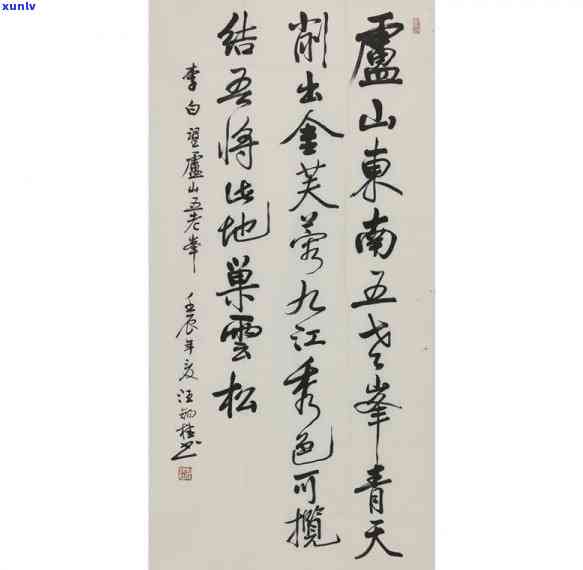 xunlv
盧山東南五老峯青天
削出金芙蓉九江秀色可攬
結吾將此地巢雲松
李白望盧山五老峯 壬辰年夏汪